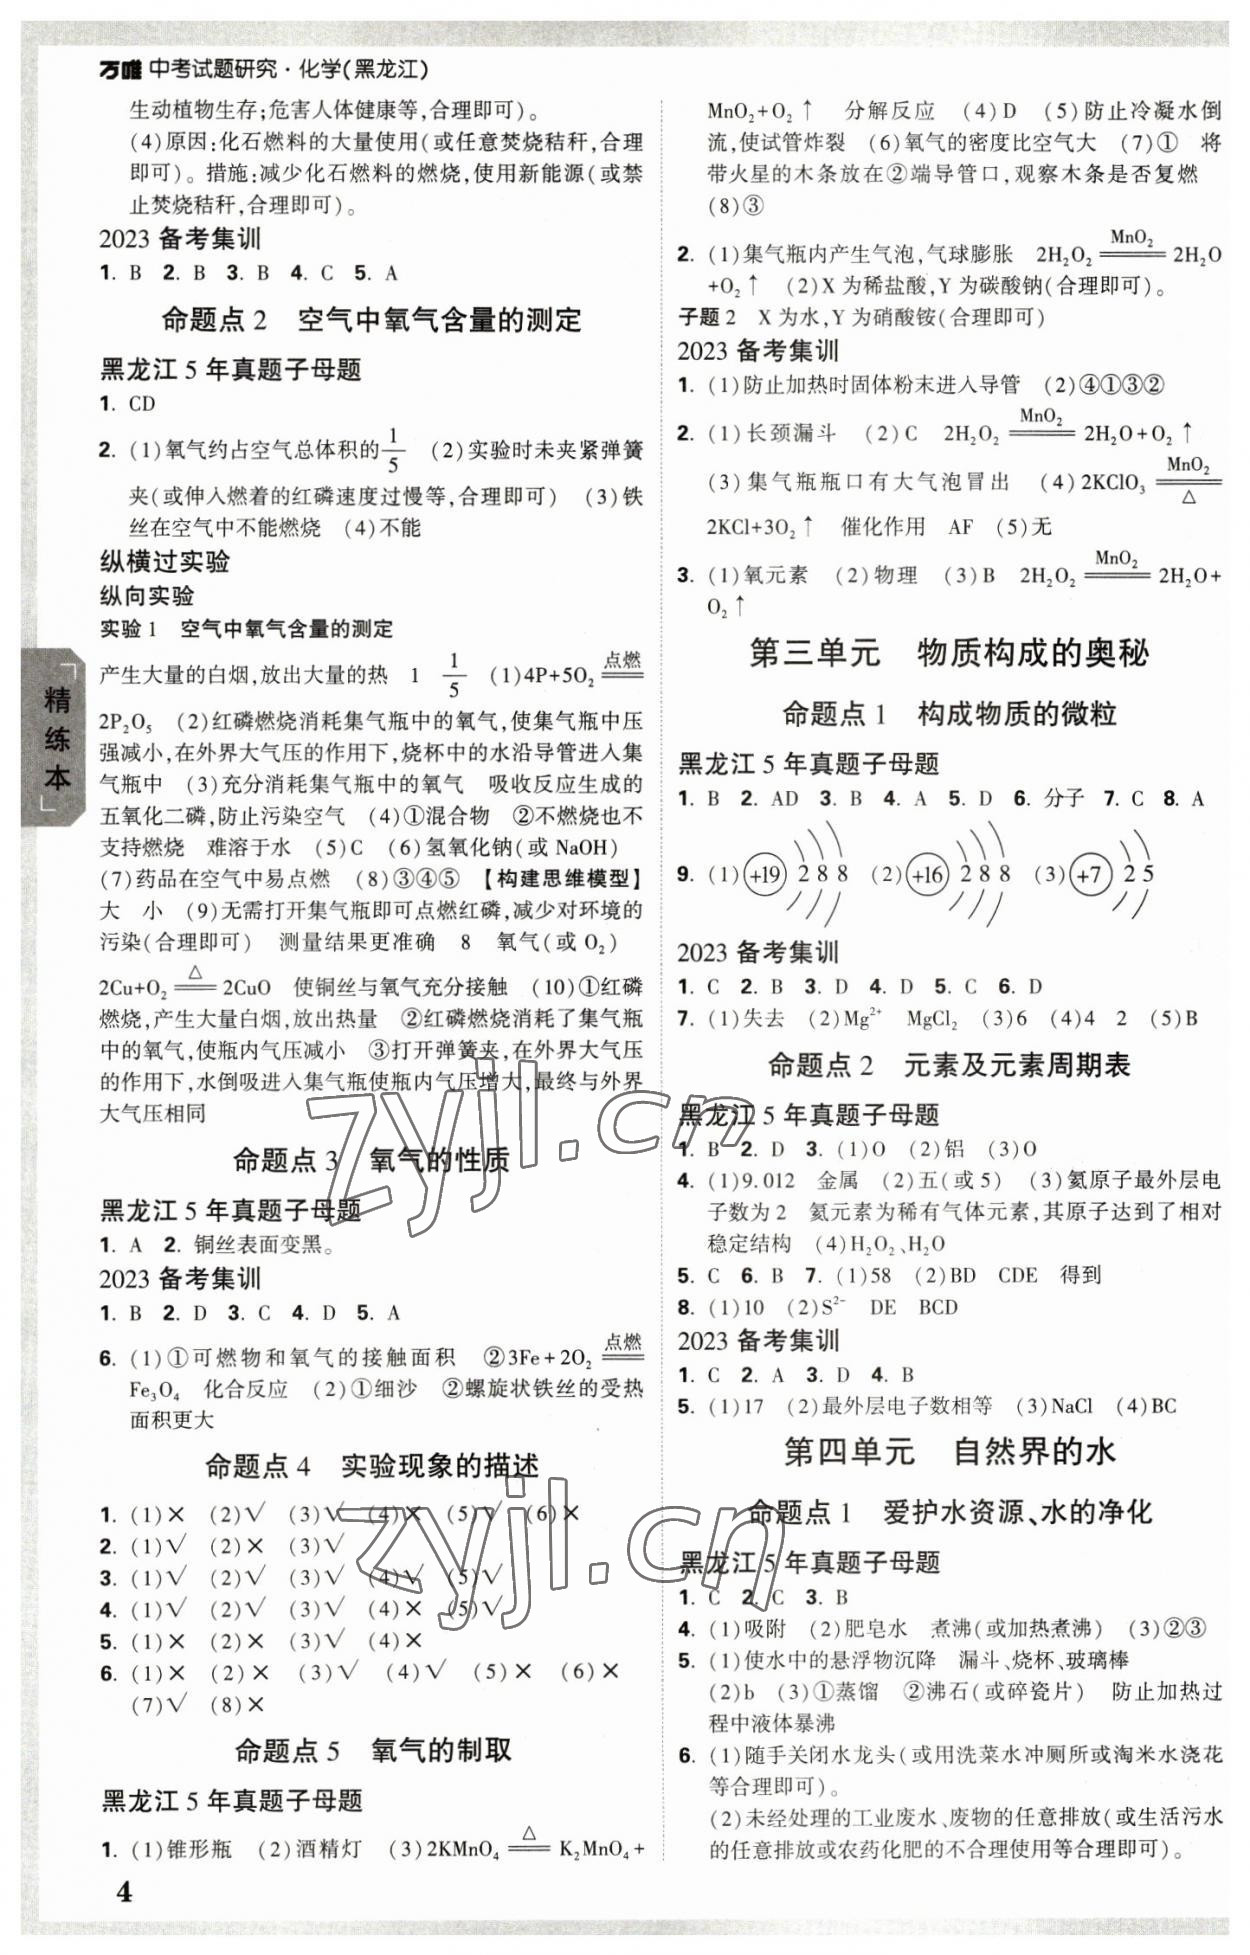 万唯 中考试题研究·化学(黑龙江)
生动植物生存;危害人体健康等,合理即可)。
(4)原因:化石燃料的大量使用(或任意焚烧秸秆,合理
即可)。措施:减少化石燃料的燃烧,使用新能源(或禁
止焚烧秸秆,合理即可)。
2023 备考集训
1. B 2. B 3. B 4. C 5. A
命题点 2 空气中氧气含量的测定
黑龙江 5 年真题子母题
1. CD
2. (1)氧气约占空气总体积的1/5 (2)实验时未夹紧弹簧
夹(或伸入燃着的红磷速度过慢等,合理即可) (3)铁
丝在空气中不能燃烧 (4)不能
纵横过实验
纵向实验
实验 1 空气中氧气含量的测定
产生大量的白烟,放出大量的热 1 1/5 (1)4P+5O₂ 点燃═
2P₂O₅ (2)红磷燃烧消耗集气瓶中的氧气,使集气瓶中压
强减小,在外界大气压的作用下,烧杯中的水沿导管进入集
气瓶中 (3)充分消耗集气瓶中的氧气 吸收反应生成的
五氧化二磷,防止污染空气 (4)①混合物 ②不燃烧也不
支持燃烧 难溶于水 (5)C (6)氢氧化钠(或 NaOH)
(7)药品在空气中易点燃 (8)③④⑤ 【构建思维模型】
大 小 (9)无需打开集气瓶即可点燃红磷,减少对环境的
污染(合理即可) 测量结果更准确 8 氧气(或 O₂)
2Cu+O₂ △═ 2CuO 使铜丝与氧气充分接触 (10)①红磷
燃烧,产生大量白烟,放出热量 ②红磷燃烧消耗了集气瓶
中的氧气,使瓶内气压减小 ③打开弹簧夹,在外界大气压
的作用下,水倒吸进入集气瓶使瓶内气压增大,最终与外界
大气压相同
命题点 3 氧气的性质
黑龙江 5 年真题子母题
1. A 2. 铜丝表面变黑。
2023 备考集训
1. B 2. D 3. C 4. D 5. A
6. (1)①可燃物和氧气的接触面积 ②3Fe+2O₂ 点燃═
Fe₃O₄ 化合反应 (2)①细沙 ②螺旋状铁丝的受热
面积更大
命题点 4 实验现象的描述
1. (1)× (2)√ (3)√ (4)× (5)√ (6)×
2. (1)√ (2)× (3)√
3. (1)√ (2)√ (3)√ (4)√ (5)√
4. (1)√ (2)√ (3)√ (4)× (5)√
5. (1)× (2)× (3)√ (4)×
6. (1)× (2)× (3)√ (4)√ (5)× (6)×
(7)√ (8)×
命题点 5 氧气的制取
黑龙江 5 年真题子母题
1. (1)锥形瓶 (2)酒精灯 (3)2KMnO₄ △═ K₂MnO₄+
精练本
4
MnO₂+O₂↑ 分解反应 (4)D (5)防止冷凝水倒
流,使试管炸裂 (6)氧气的密度比空气大 (7)① 将
带火星的木条放在②端导管口,观察木条是否复燃
(8)③
2. (1)集气瓶内产生气泡,气球膨胀 2H₂O₂ MnO₂═ 2H₂O
+O₂↑ (2)X 为稀盐酸,Y 为碳酸钠(合理即可)。
子题 2 X 为水,Y 为硝酸铵(合理即可)
2023 备考集训
1. (1)防止加热时固体粉末进入导管 (2)④①③②
2. (1)长颈漏斗 (2)C 2H₂O₂ MnO₂═ 2H₂O+O₂↑
(3)集气瓶瓶口有大气泡冒出 (4)2KClO₃ MnO₂═△
2KCl+3O₂↑ 催化作用 AF (5)无
3. (1)氧元素 (2)物理 (3)B 2H₂O₂ MnO₂═ 2H₂O+
O₂↑
第三单元 物质构成的奥秘
命题点 1 构成物质的微粒
黑龙江 5 年真题子母题
1. B 2. AD 3. B 4. A 5. D 6. 分子 7. C 8. A
9. (1) +19 2 8 8 (2) +16 2 8 8 (3) +7 2 5
2023 备考集训
1. C 2. B 3. D 4. D 5. C 6. D
7. (1)失去 (2)Mg²⁺ MgCl₂ (3)6 (4)4 2 (5)B
命题点 2 元素及元素周期表
黑龙江 5 年真题子母题
1. B 2. D 3. (1)O (2)铝 (3)O
4. (1)9.012 金属 (2)五(或 5) (3)氦原子最外层电
子数为 2 氦元素为稀有气体元素,其原子达到了相对
稳定结构 (4)H₂O₂、H₂O
5. C 6. B 7. (1)58 (2)BD CDE 得到
8. (1)10 (2)S²⁻ DE BCD
2023 备考集训
1. C 2. A 3. D 4. B
5. (1)17 (2)最外层电子数相等 (3)NaCl (4)BC
第四单元 自然界的水
命题点 1 爱护水资源、水的净化
黑龙江 5 年真题子母题
1. C 2. C 3. B
4. (1)吸附 (2)肥皂水 煮沸(或加热煮沸) (3)②③
5. (1)使水中的悬浮物沉降 漏斗、烧杯、玻璃棒
(2)b (3)①蒸馏 ②沸石(或碎瓷片) 防止加热过
程中液体暴沸
6. (1)随手关闭水龙头(或用洗菜水冲厕所或淘米水浇花
等合理即可)。
(2)未经处理的工业废水、废物的任意排放(或生活污水
的任意排放或农药化肥的不合理使用等合理即可)。
zyjl.cn
zyjl.cn